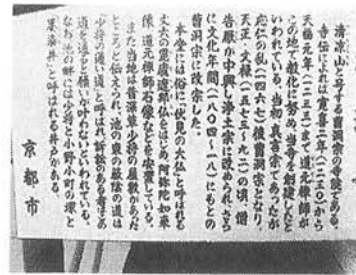 清凉山と号する曹洞宗の寺院である。
寺伝によれば寛喜二年(一二三〇)から
天福元年(一二三三)まで道元禅師が
この地で教化に努め、当寺を創建したと
いわれている。当初、真言宗であったが
応仁の乱(一四六七)後曹洞宗となり、
天正・文禄(一五七三〜九二)の頃、僧
告厭が中興し浄土宗に改められ、さら
に文化年間(一八〇四〜一八)にもとの
曹洞宗に改宗した。
本堂には俗に「伏見の大仏」と呼ばれる
丈六の毘盧遮那仏をはじめ、阿弥陀如来
像、道元禅師石像などを安置している。
また当地は昔深草少将の屋敷があった
ところと伝えられ、池の東の藪陰の道は
「少将の通い道」と呼ばれ、訴訟のある者がこの
道を通ると願いが叶わないといわれている。
なお池の畔には少将と小野小町の塚と
「墨染井」と呼ばれる井戸がある。
京都市